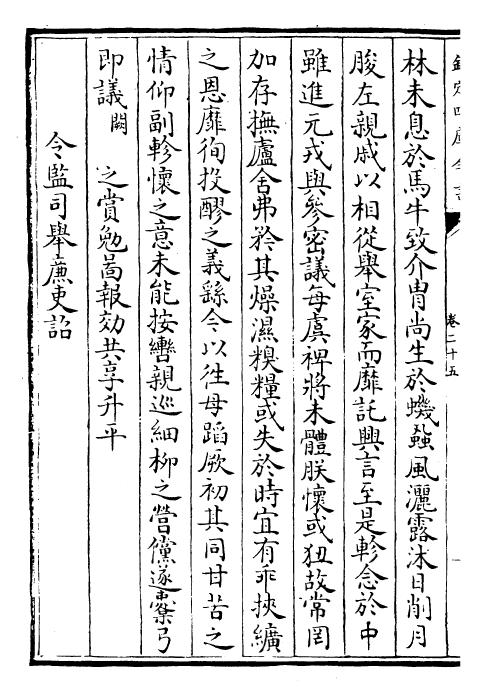 欽定四庫全書
卷二十五
林未息於馬牛致介胄尚生於蟣蝨風灑露沐日削月
朘左親戚以相從舉室家而靡託興言至是軫念於中
雖進元戎與參密議每虞裨將未體朕懷或狃故常罔
加存撫廬舍弗矜其燥濕糗糧或失於時宜有乖挾纊
之恩靡徇投醪之義繇今以徃毋蹈厥初其同甘苦之
情仰副軫懷之意未能按轡親巡細柳之營儻遂櫜弓
即議闕　之賞勉啚報効共享升平
令監司舉㢘吏詔